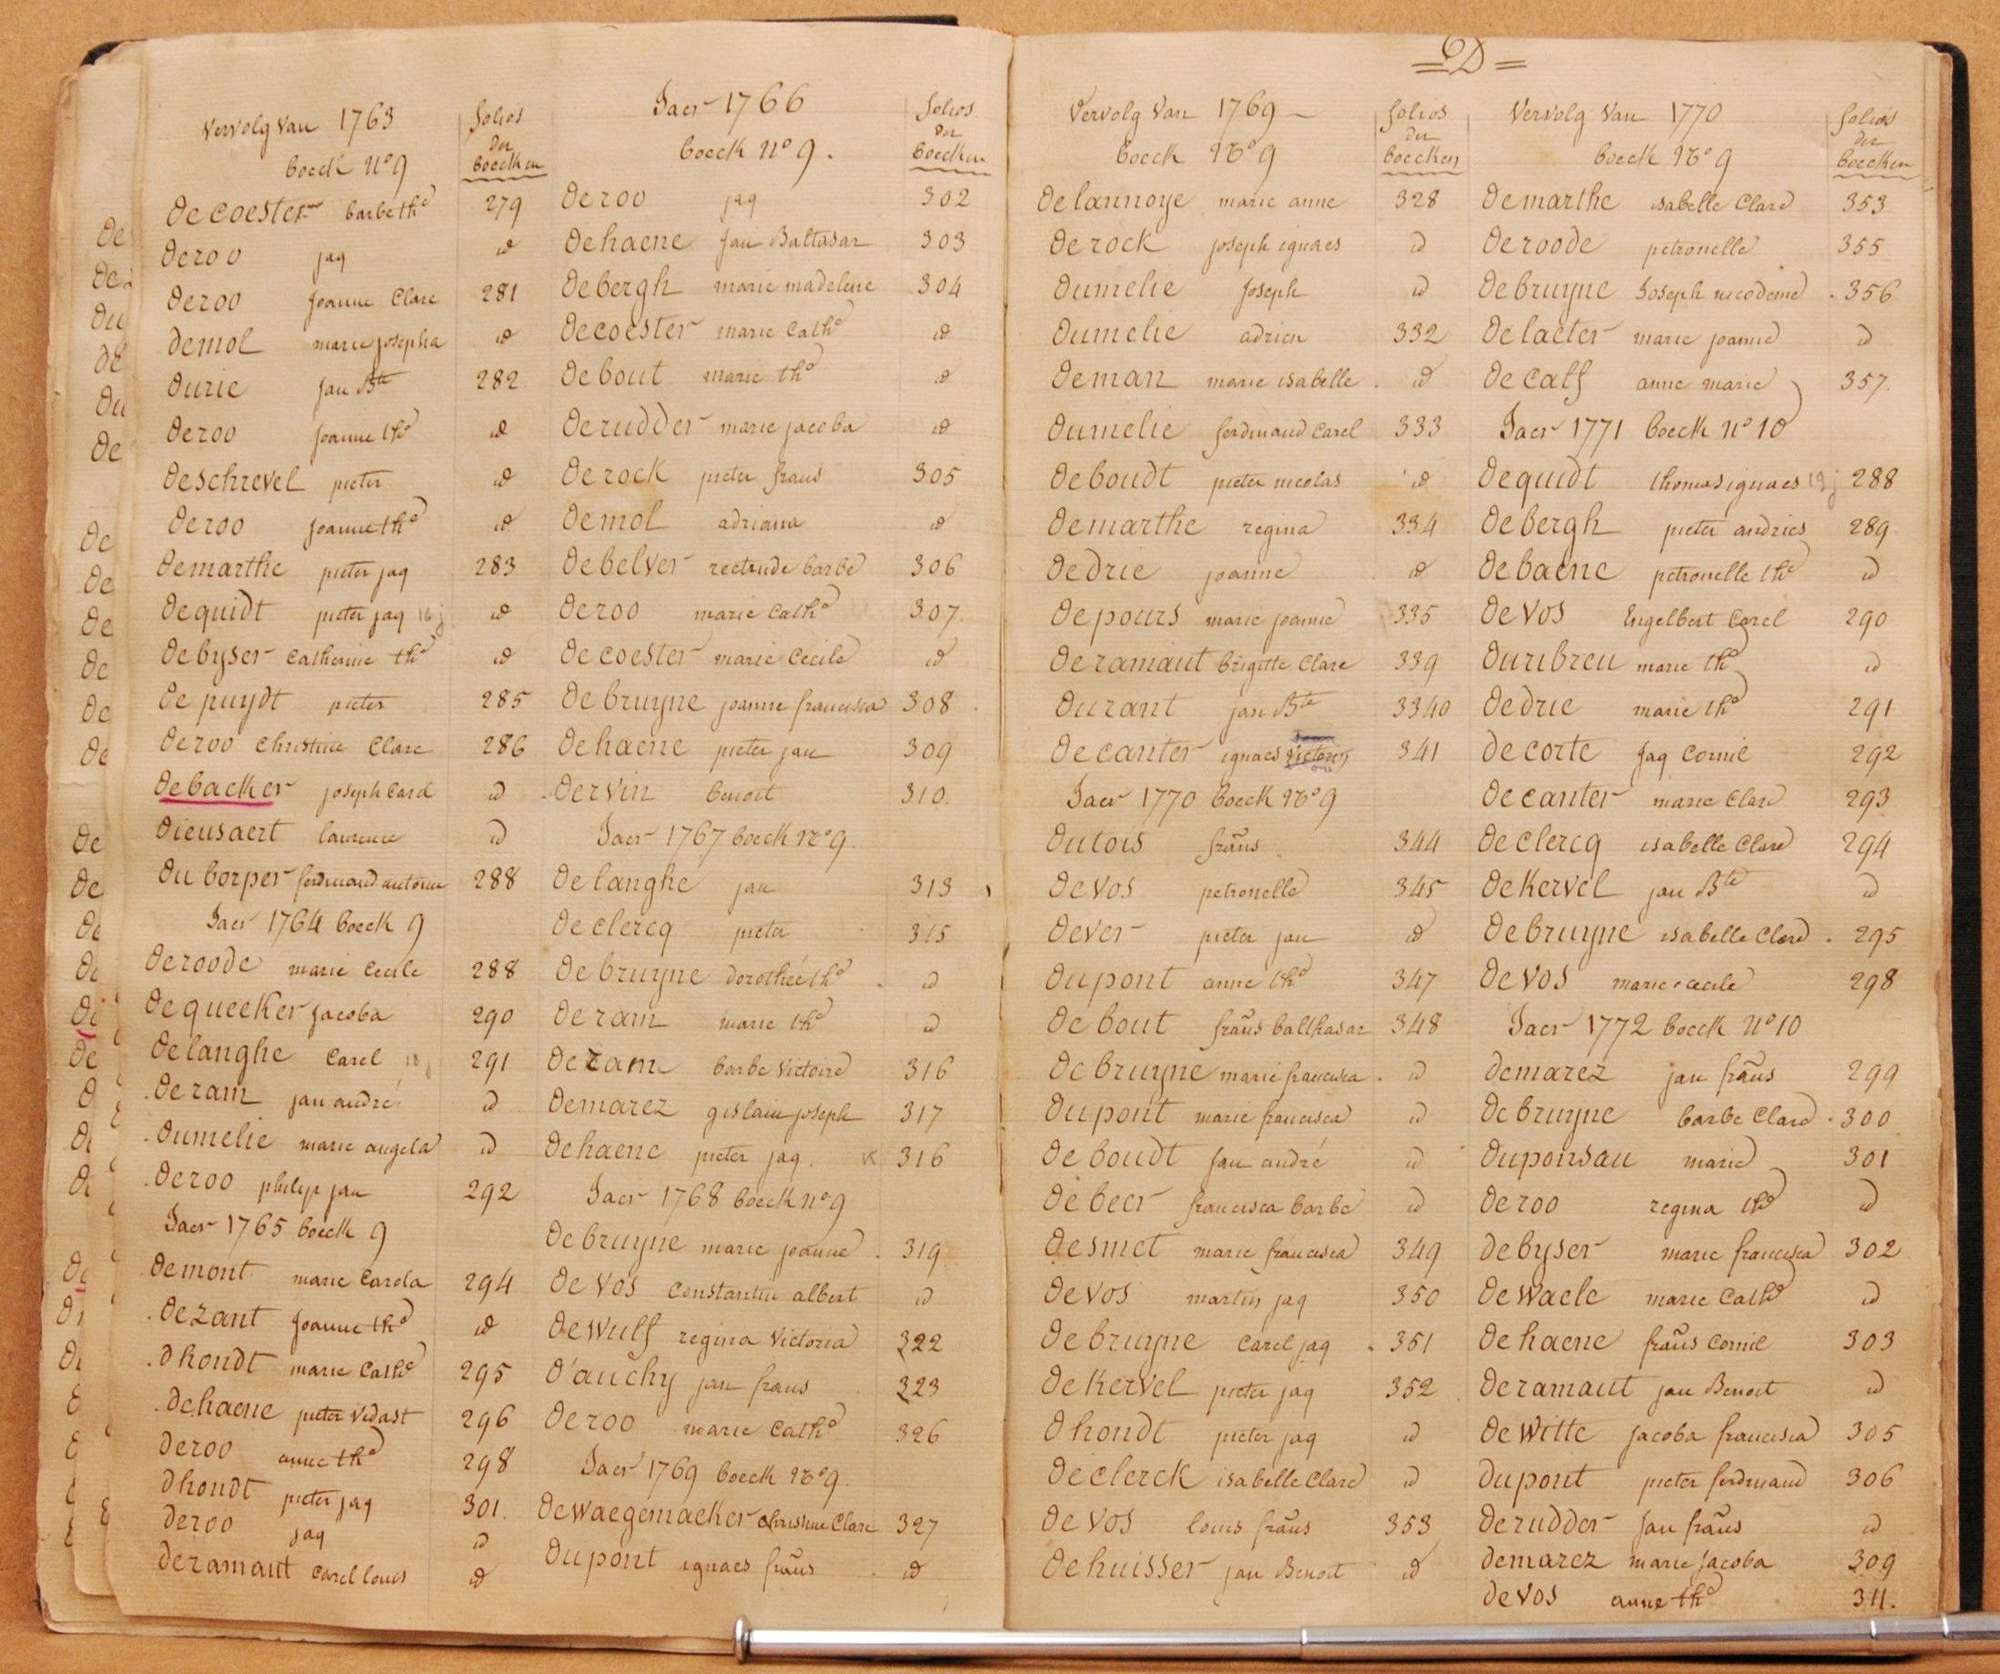 Vervolg Van 1763
boeck N° 9
folios
der
boecken
De coester barbe the 279
De roo jaq id
De roo Joanne Clare 281
demol marie josepha id
durie Jan Bte 282
De roo Joanne the id
De schrevel pieter id
De roo Joanne the id
Demarthe pieter jaq 283
De quidt pieter jaq id
De byser Catherine the id
De puydt pieter 285
De roo christine Clare 286
De backer joseph Carel id
Dieusaert laurence id
Du borper ferdinand antoine 288
Jaer 1764 boeck 9
De roode marie Cecile 288
De queeker Jacoba 290
De langhe Carel 291
De ram jan andré id
Dumelie marie angela id
De roo philip jan 292
Jaer 1765 boeck 9
Demont marie Carola 294
De zant Joanne the id
Dhondt marie Cathe 295
De haene pieter Vedast 296
De roo anne the 298
Dhondt pieter jaq 301
De roo jaq id
Deramaut Carel louis id
Jaer 1766
boeck N° 9.
folios
der
boecken
De roo jaq 302
De haene Jan Baltasar 303
De bergh marie madelene 304
De coester marie Cathe id
De bout marie the id
De rudder marie jacoba id
De rock pieter frans 305
De mol adriana id
De belver rectrude barbe 306
De roo marie Cathe 307
De coester marie Cecile id
De bruyne joanne francisca 308
De haene pieter jan 309
Dervin benoit 310
Jaer 1767 boeck N° 9
De langhe jan 313
De clercq pieter 315
De bruyne dorothée the id
De ram marie the id
De ram barbe Victoire 316
Demarez gislain joseph 317
De haene pieter jaq 316
Jaer 1768 boeck N° 9
De bruyne marie joanne 319
De Vos Constantin albert id
De wulf regina Victoria 322
D'auchy jan frans 323
De roo marie Cathe 326
Jaer 1769 boeck N° 9.
De waegemaeker Christine Clare 327
Dupont ignaes frans id
= D =
Vervolg Van 1769
boeck N° 9
folios
der
boecken
De lannoye marie anne 328
De rock joseph ignaes id
Dumelie Joseph id
Dumelie adrien 332
Deman marie isabelle id
Dumelie ferdinand Carel 333
De boudt pieter nicolas id
Demarthe regina 334
Dedrie joanne id
De pours marie joanne 335
Deramaut brigitte Clare 339
Durant jan Bte 3340
De canter ignaes 341
Jaer 1770 boeck N° 9
Dutois frans 344
De Vos petronelle 345
Dever pieter jan id
Dupont anne the 347
De bout frans balthasar 348
De bruyne marie francisca id
Dupont marie francisca id
De boudt Jan andré id
De beer francisca barbe id
Desmet marie francisca 349
De Vos martin jaq 350
De bruyne Carel jaq 351
De Kervel pieter jaq 352
Dhondt pieter jaq id
De clerck isabelle Clare id
De Vos louis frans 353
De huisser jan Benoit id
Vervolg Van 1770
boeck N° 9
folios
der
boecken
Demarthe isabelle Clare 353
De roode petronelle 355
De bruyne Joseph nicodeme 356
De laeter marie joanne id
De calf anne marie 357
Jaer 1771 boeck N° 10
De quidt thomas ignaes 288
De bergh pieter andries 289
De baene petronelle the id
De Vos Engelbert Carel 290
Duribreu marie the id
Dedrie marie the 291
De corte Jaq Cornil 292
De canter marie Clare 293
De clercq isabelle Clare 294
De Kervel jan Bte id
De bruyne isabelle Clare 295
De Vos marie cecile 298
Jaer 1772 boeck N° 10
Demarez jan frans 299
De bruyne barbe Clare 300
Duponsau marie 301
De roo regina the id
De byser marie francisca 302
De waele marie Cathe id
De haene frans Cornil 303
Deramaut jan Benoit id
De Witte Jacoba francisca 305
Dupont pieter ferdinand 306
De rudder Jan frans id
Demarez marie Jacoba 309
De Vos anne the 311.